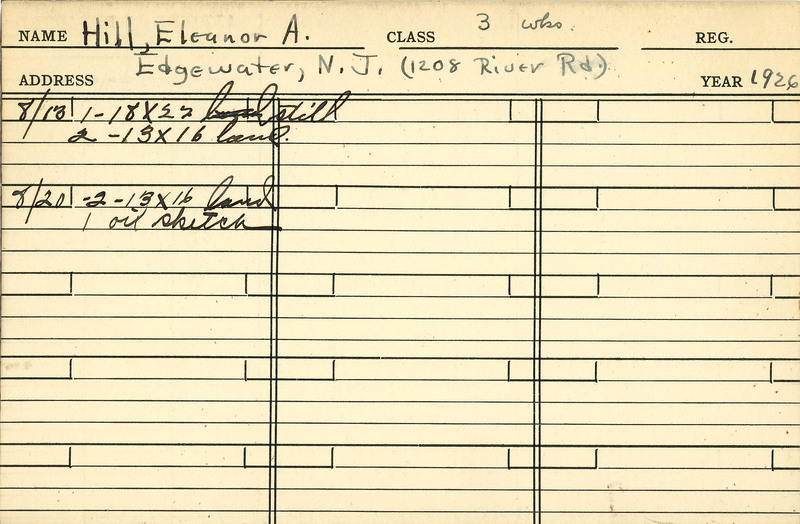 NAME Hill, Eleanor A. CLASS 3 wks. REG.
ADDRESS Edgewater, N.J. (1208 River Rd.) YEAR 1926
8/13 1-18x22 still
2-13x16 land.
8/20 -2-13x16 land
1 oil sketch